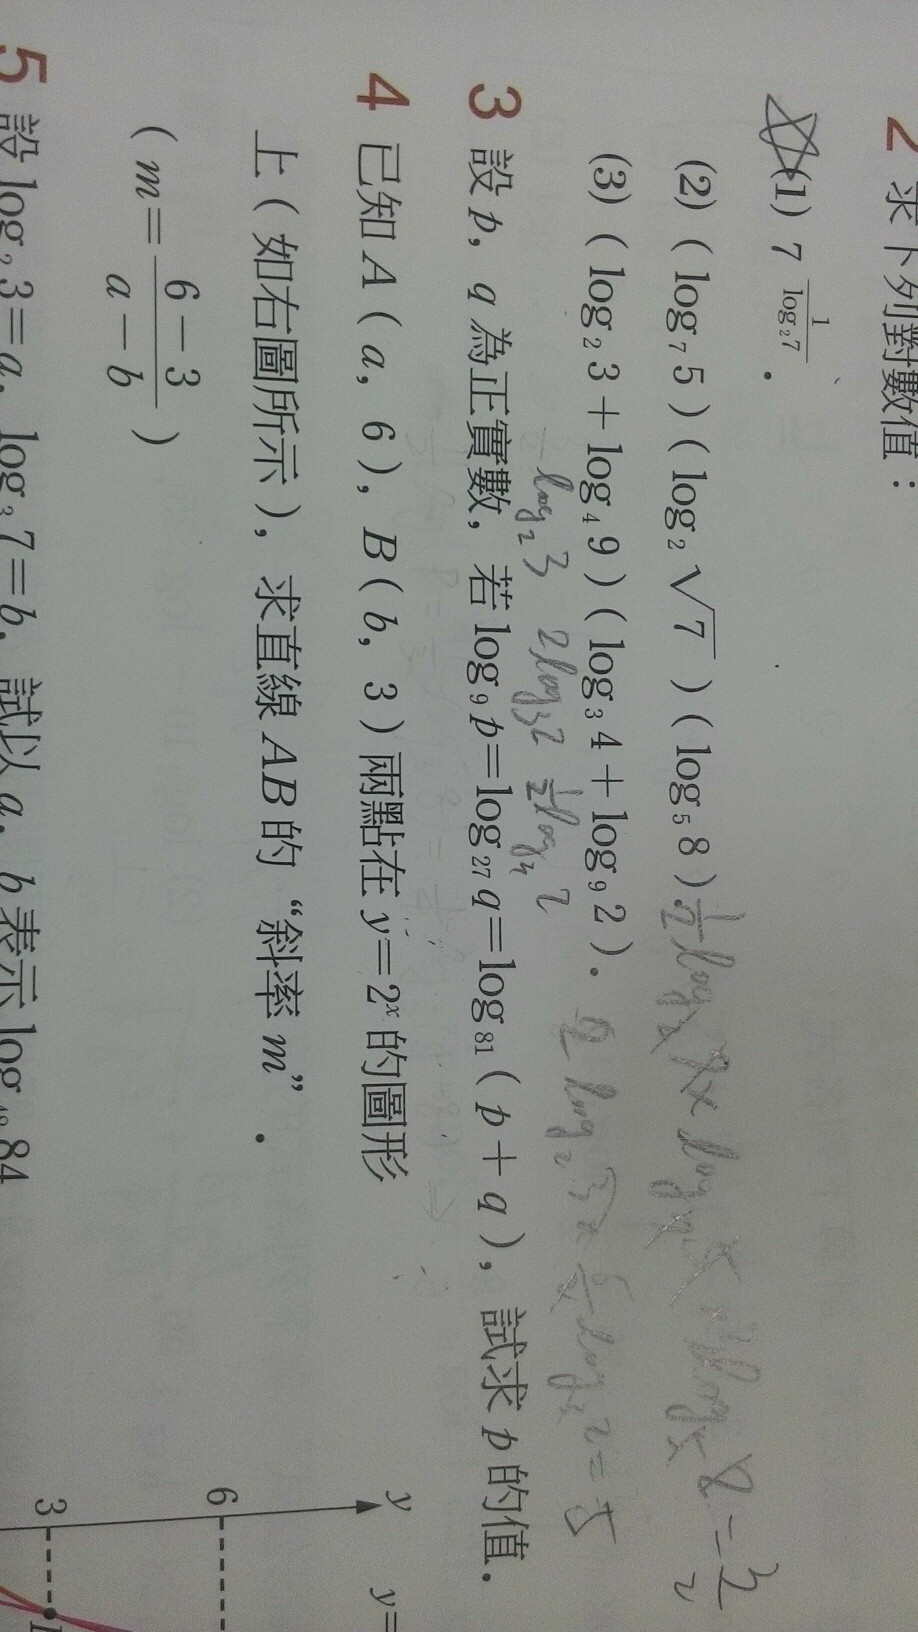 2 求下列對數值：
(1) 7^{\frac{1}{\log_2 7}}．
(2) ( log₇5 ) ( log₂√7 ) ( log₅8 )．
(3) ( log₂3＋log₄9 ) ( log₃4＋log₉2 )．
log₂3 2log₃2 ½log₃2
3 設 p, q 為正實數，若 log₉p＝log₂₇q＝log₈₁( p＋q )，試求 p 的值．
4 已知 A ( a, 6 ), B ( b, 3 ) 兩點在 y＝2ˣ 的圖形
上（如右圖所示），求直線 AB 的“斜率 m”．
( m＝\frac{6－3}{a－b} )
y
y=
6
3
5 設 log₂3＝a, log₃7＝b, 試以 a, b 表示 log 84